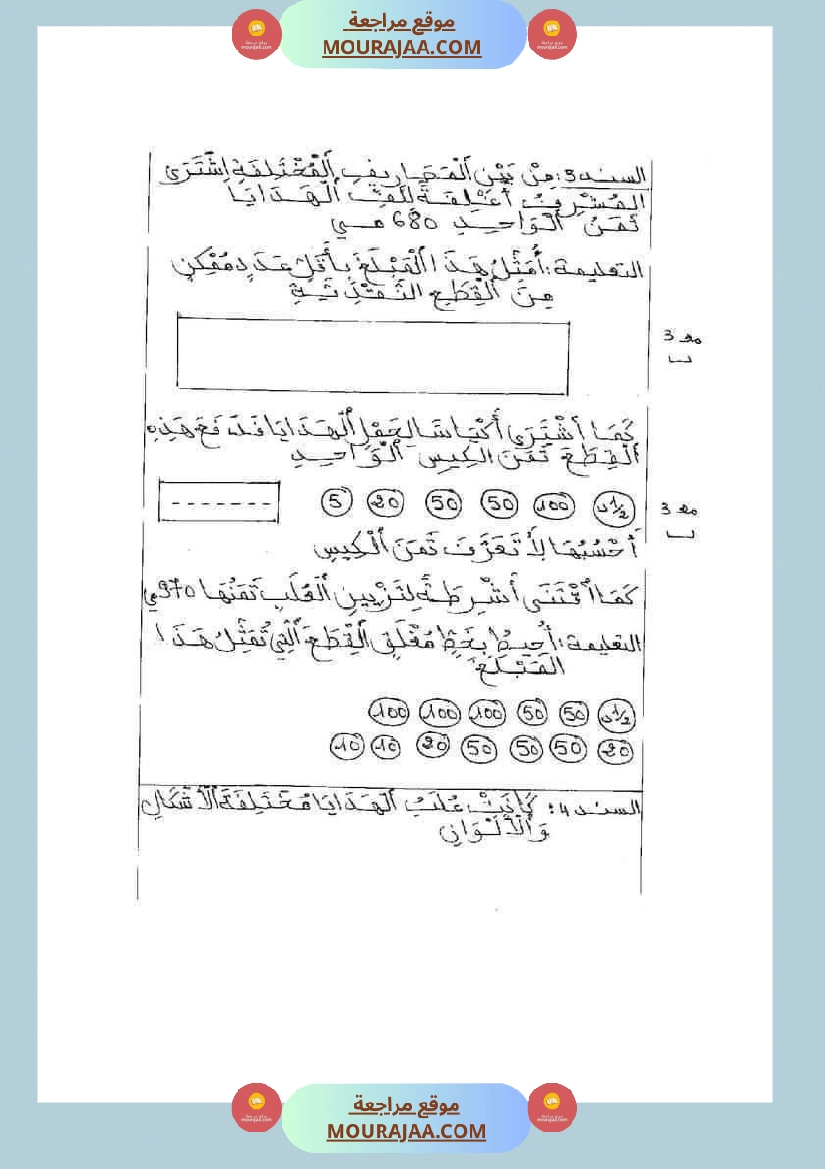 موقع مراجعة
MOURAJAA.COM
السند 3: مِنْ بَيْنِ اَلْمَصَارِيفِ اَلْمُخْتَلِفَةِ اِشْتَرَى
المُشْرِفُ أَغْلِفَةً لِلَفِّ اَلْهَدَايَا
ثَمَنُ اَلْوَاحِدِ 680 مي
التعليمة: أُمَثِّلُ هَذَا اَلْمَبْلَغَ بِأَقَلِّ عَدَدٍ مُمْكِنٍ
مِنَ اَلْقِطَعِ النَّقْدِيَّةِ
مع 3
كَمَا اِشْتَرَى أَكْيَاسًا لِحَمْلِ اَلْهَدَايَا فَدَفَعَ هَذِهِ
اَلْقِطَعَ ثَمَنَ الكِيسِ اَلْوَاحِدِ
1/2د 100 50 50 20 5 -------
مع 3
أَحْسُبُهَا لِأَتَعَرَّفَ ثَمَنَ اَلْكِيسِ
كَمَا اقْتَنَى أَشْرِطَةً لِتَزْيِينِ اَلْعُلَبِ ثَمَنُهَا 970 مي
التعليمة: أُحِيطُ بِخَطٍّ مُغْلَقٍ اَلْقِطَعَ اَلَّتِي تُمَثِّلُ هَذَا
المَبْلَغَ
1/2د 50 50 100 100 100
20 50 50 50 20 10 10
السند 4: كَانَتْ عُلَبُ اَلْهَدَايَا مُخْتَلِفَةَ اَلْأَشْكَالِ
وَاَلْأَلْوَانِ
موقع مراجعة
MOURAJAA.COM